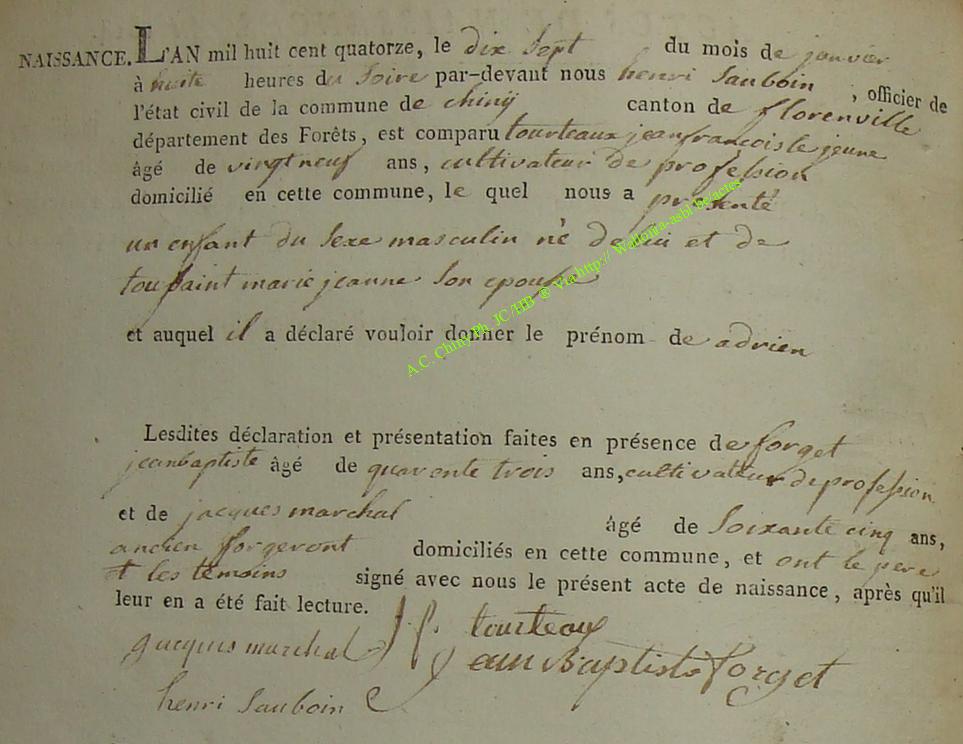 NAISSANCE. L'AN mil huit cent quatorze, le dix sept du mois de janvier
à huite heures du Soire par-devant nous henri Sauboin, officier de
l'état civil de la commune de chinÿ canton de florenville
département des Forêts, est comparu tourteaux jean françois le jeune
âgé de vingt neuf ans, cultivateur de profession
domicilié en cette commune, le quel nous a présenté
un enfant du sexe masculin né de lui et de
toussaint marie jeanne son epouse
et auquel il a déclaré vouloir donner le prénom de adrien
Lesdites déclaration et présentation faites en présence de forget
jeanbaptiste âgé de quarente trois ans, cultivateur de profession
et de jacques marchal âgé de Soixante cinq ans,
ancien forgeront domiciliés en cette commune, et ont le pere
et les témoins signé avec nous le présent acte de naissance, après qu'il
leur en a été fait lecture.
jacques marchal J f. tourteaux
Jean Baptiste forget
henri Sauboin
A.C. Chiny Ph. JC/HB @ via http:// Wallonia-asbl.be/actes